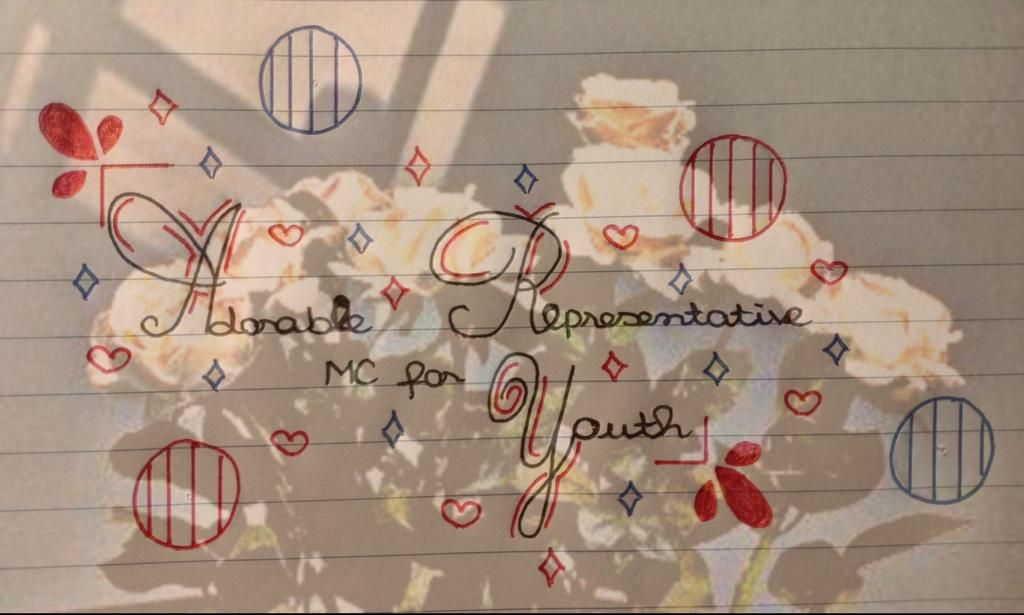 Adorable Representative
MC for Youth